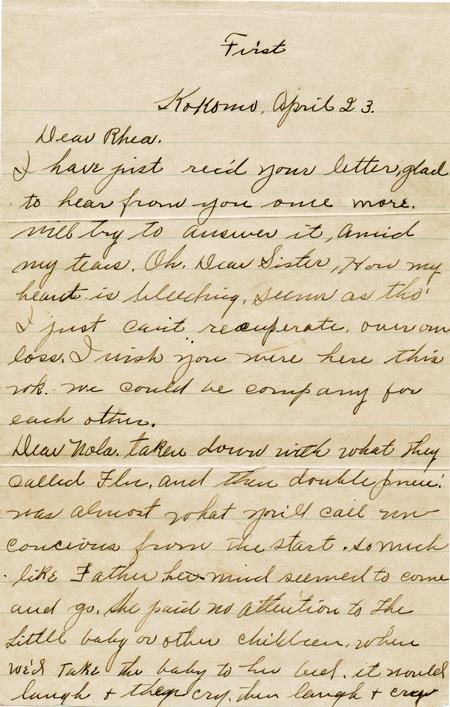 First
Kokomo, April 23.
Dear Rhea.
I have just rec'd your letter, glad
to hear from you once more.
Will try to answer it, amid
my tears. Oh. Dear Sister, How my
heart is bleeding, seems as tho'
I just can't recuperate, over our
loss. I wish you were here this
wk. we could be company for
each other.
Dear Nola. taken down with what they
called Flu, and then double pneu.
was almost what you'd call un-
concious from the start. so much
like Father her mind seemed to come
and go. She paid no attention to the
little baby or other children, when
we'd take the baby to her bed. it would
laugh & then cry. then laugh & cry